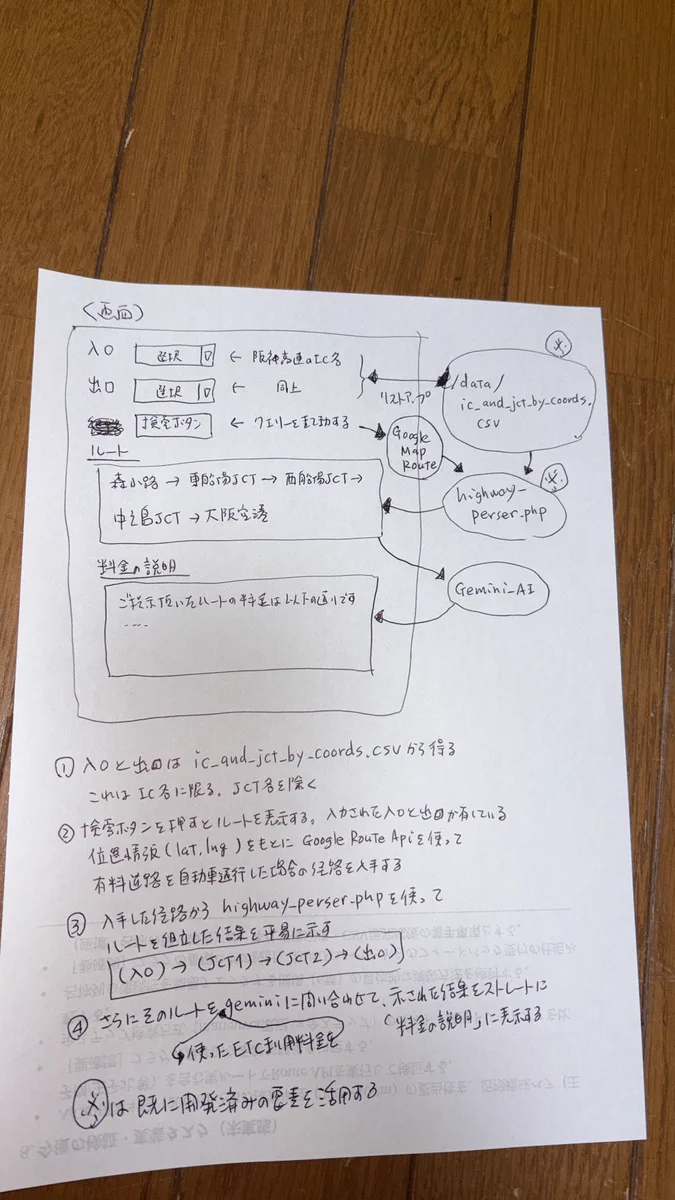 <画面>
入口 選択 ▽ ← 阪神高速のIC名
出口 選択 ▽ ← 同上
リストアップ
検索ボタン ← クエリーを起動する
※
/data/
ic_and_jct_by_coords.
csv
Google
Map
Route
※
highway_
perser.php
Gemini_AI
ルート
森小路 → 東船場JCT → 西船場JCT →
中之島JCT → 大阪空港
料金の説明
ご提示頂いたルートの料金は以下の通りです
....
① 入口と出口は ic_and_jct_by_coords.csv から得る
これは IC名に限る、JCT名を除く
② 検索ボタンを押すとルートを表示する。入力された入口と出口が有している
位置情報(lat,lng)をもとに Google Route Apiを使って
有料道路を自動車通行した場合の経路を入手する
③ 入手した径路から highway_perser.php を使って
ルートを組立した結果を平易に示す
(入口) → (JCT1) → (JCT2) → (出口)
④ さらにそのルートをgeminiに問い合わせて、示された結果をストレートに
「料金の説明」に表示する
使ったETC利用料金を
※は既に開発済みの要素を活用する